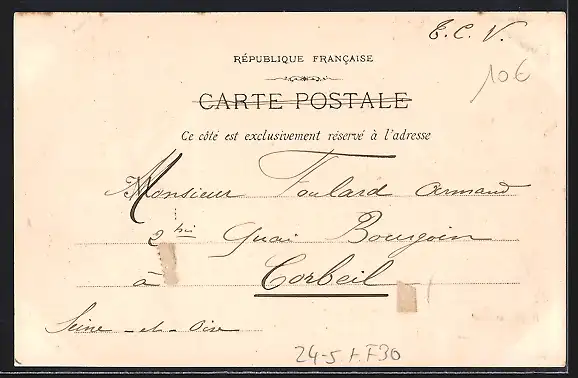 T. C. V.
10€
RÉPUBLIQUE FRANÇAISE
CARTE POSTALE
Ce côté est exclusivement réservé à l'adresse
Monsieur Foulard Armand
2 bis Quai Bourgoin
à Corbeil
Seine-et-Oise
24-5 F30